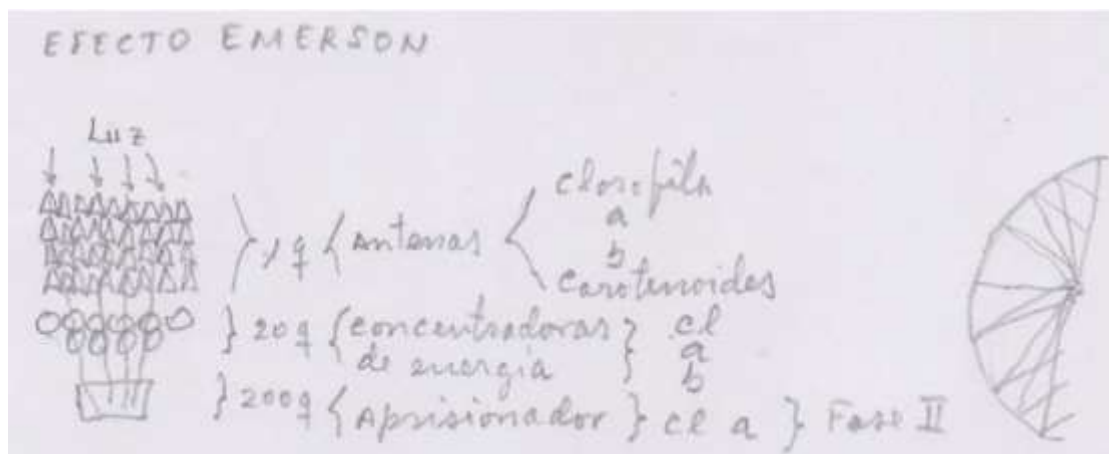 EFECTO EMERSON
Luz
} 1 q { Antenas < clorofila
a
b
carotenoides
} 20 q { concentradoras de energía } cl
a
b
} 200 q { Aprisionador } cl a } Fase II